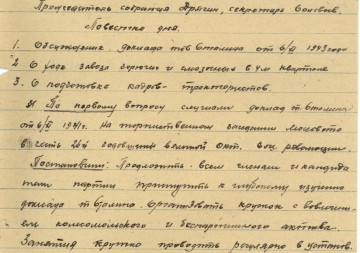 Председатель собрания Аржгин, секретарь Соловьев.
Повестка дня.
1. Обсуждение доклада тов Сталина от 6/XI 1943 года
2. О ходе завоза горючих и смазочных в 4м квартале
3. О подготовке кадров-трактористов.
По первому вопросу слушали доклад т Сталина
от 6/XI на торжественном заседании Моссовета
в честь годовщины великой Окт. Соц. революции.
Постановили: Предложить всем членам и кандида
там партии приступить к глубокому изучению
доклада т Сталина. Организовать кружок с вовлечени
ем комсомольского и беспартийного актива.
Занятия кружка проводить регулярно в установ.